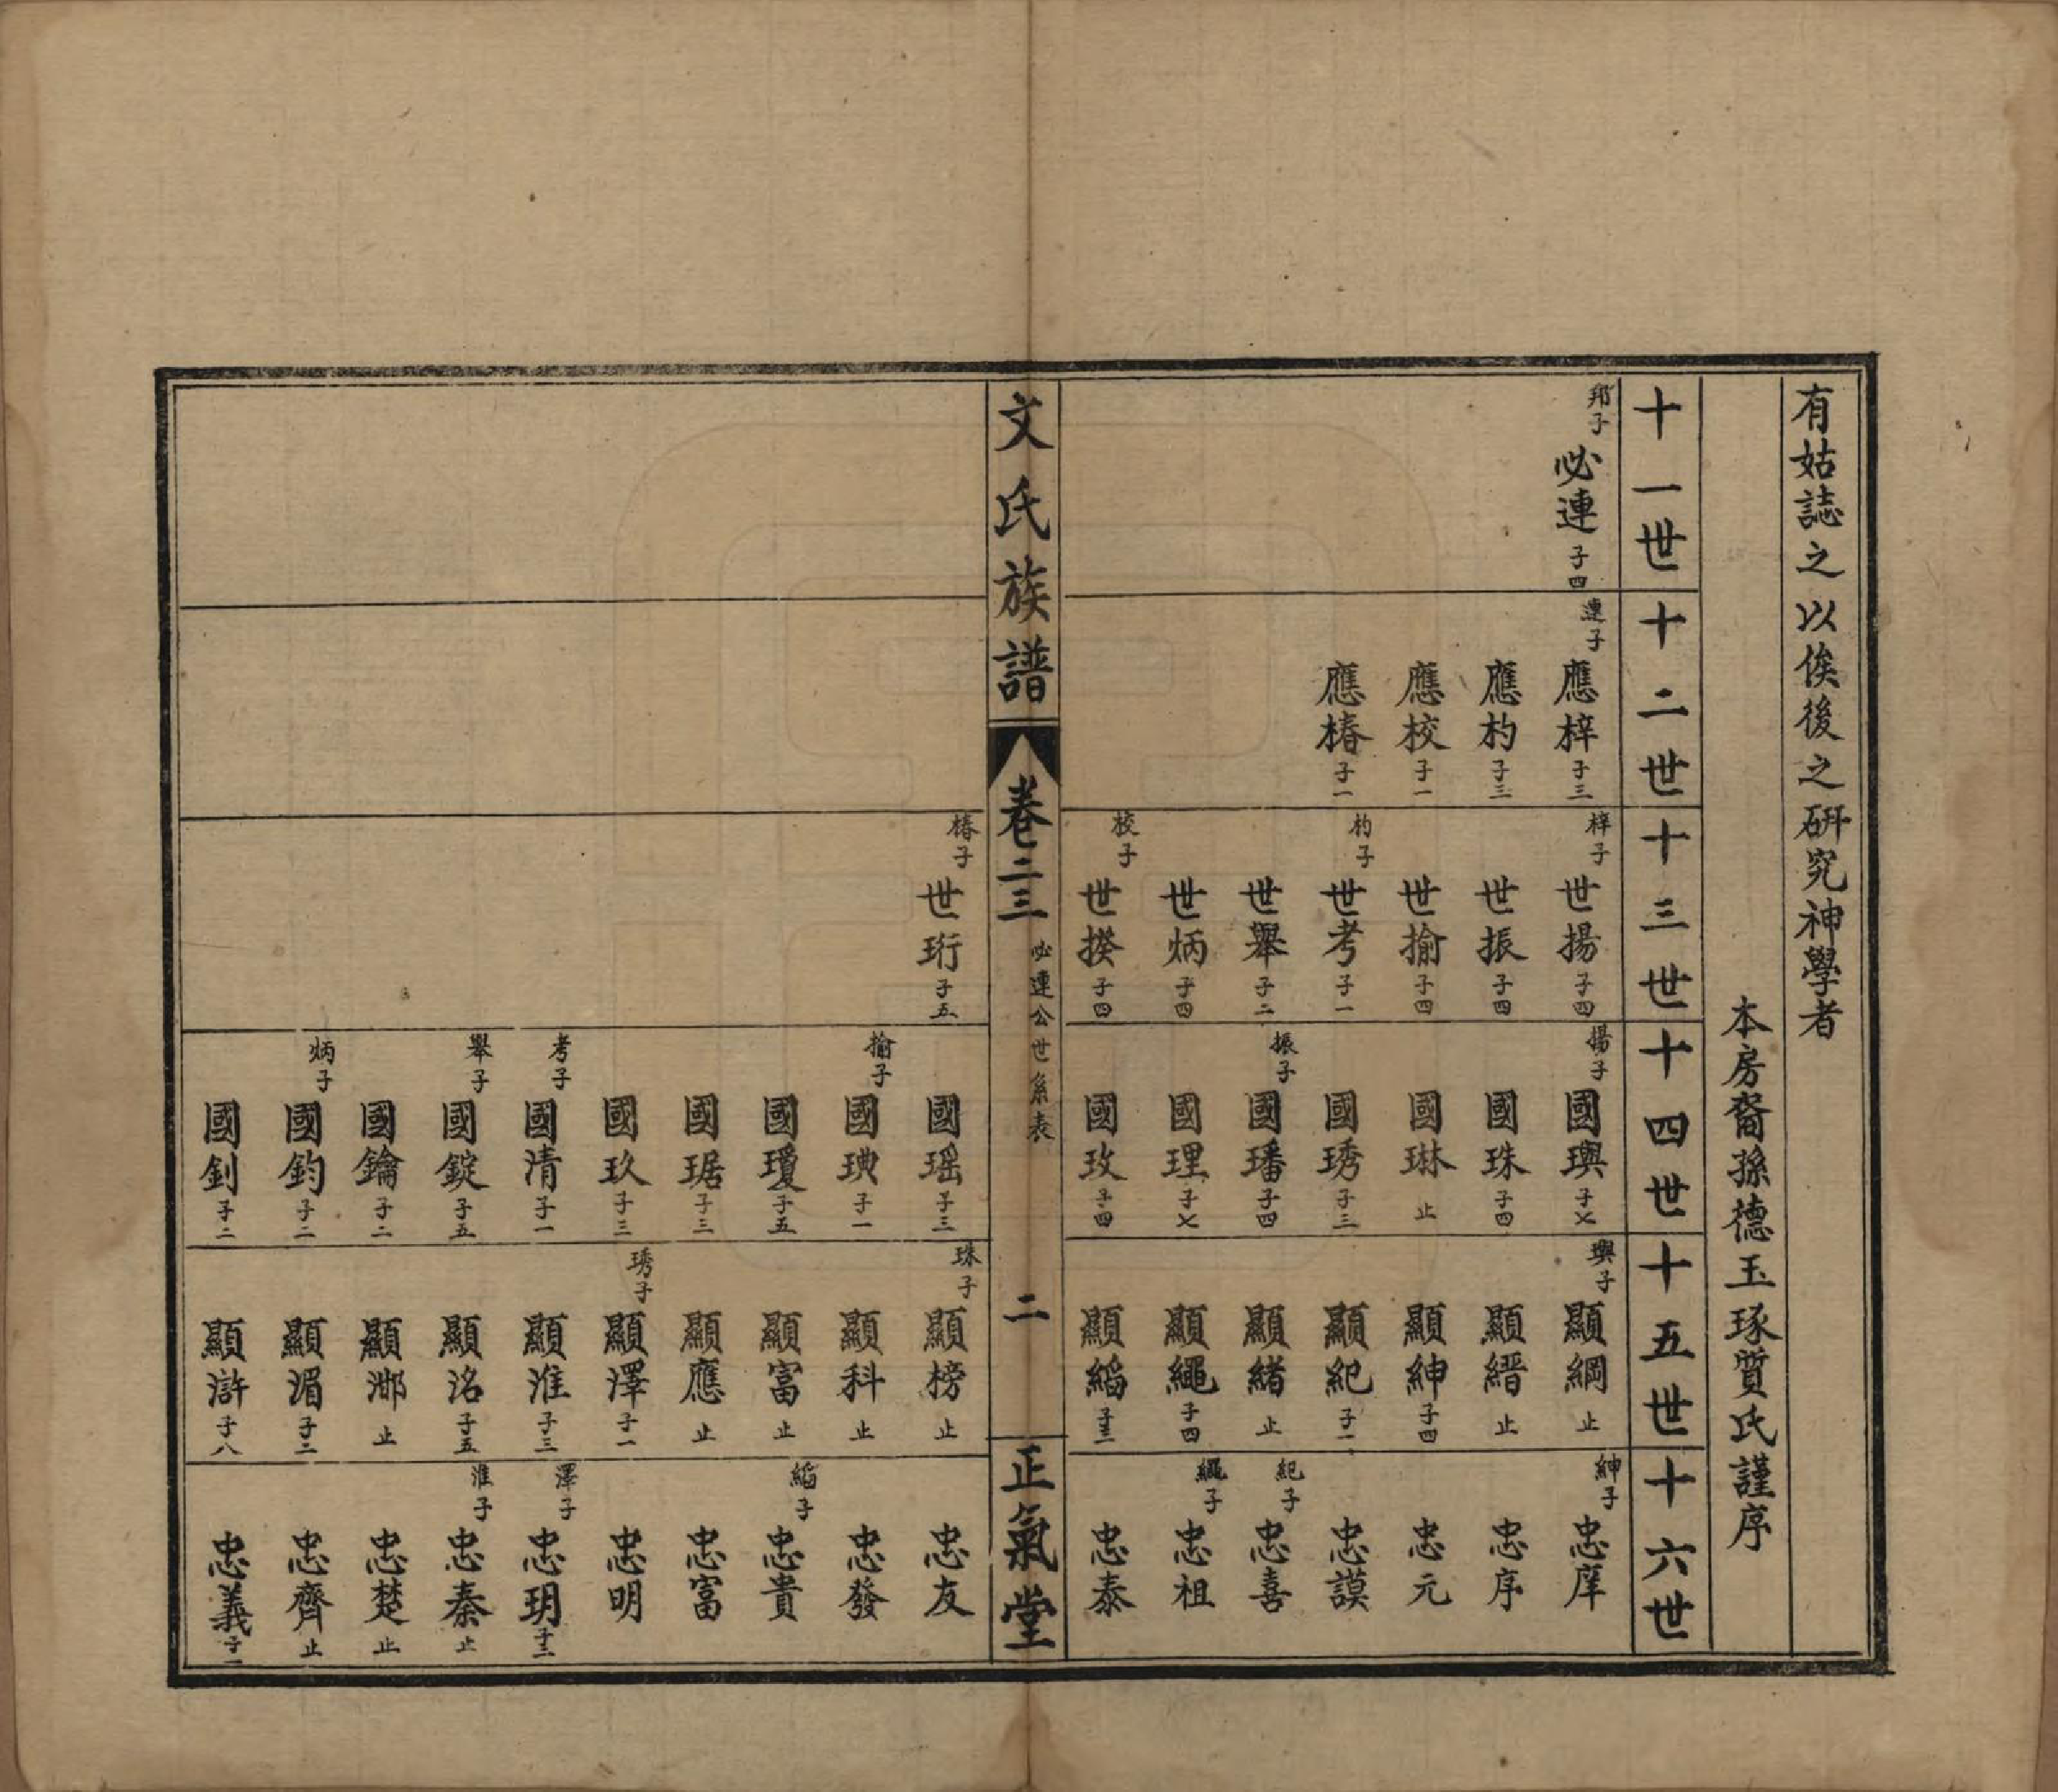 有姑誌之以俟後之研究神學者
本房裔孫德玉琢質氏謹序
十一世
邦子 必連 子四
十二世
連子 應梓 子三
應杓 子三
應校 子一
應椿 子一
十三世
梓子 世揚 子四
世振 子四
世揄 子四
杓子 世考 子一
世舉 子二
世炳 子四
校子 世揆 子四
十四世
揚子 國璵 子七
國珠 子四
國琳 止
國琇 子三
振子 國璠 子四
國理 子七
國玫 子四
十五世
璵子 顯綱 止
顯縉 止
顯紳 子四
顯紀 子一
顯緒 止
顯繩 子四
顯縚 子三
十六世
紳子 忠庠
忠序
忠元
忠謨
紀子 忠喜
繩子 忠祖
忠泰
文氏族譜
卷二三
必連公世系表
二
正氣堂
椿子 世珩 子五
國瑤 子三
揄子 國璵 子一
國瓊 子五
國琚 子三
國玖 子三
考子 國清 子一
舉子 國錠 子五
國鑰 子二
炳子 國鈞 子二
國釗 子二
珠子 顯榜 止
顯科 止
顯富 止
顯應 止
琇子 顯澤 子一
顯淮 子三
顯洺 子五
顯止
顯湄 子二
顯滸 子八
忠友
忠發
縚子 忠貴
忠富
忠明
澤子 忠玥 子二
淮子 忠秦 止
忠楚 止
忠齊 止
忠義 子一